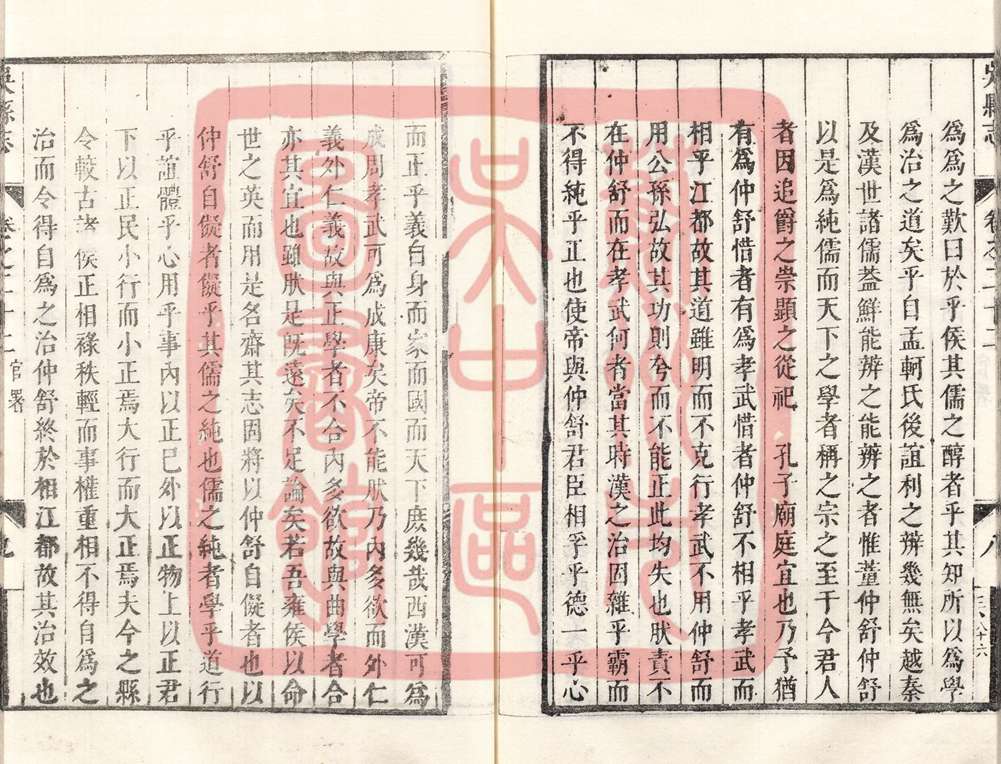 吳縣志
卷之二十二
八
三八十六
爲爲之歎曰於乎侯其儒之醇者乎其知所以爲學
爲治之道矣乎自孟軻氏後誼利之辨幾無矣越秦
及漢世諸儒葢鮮能辨之能辨之者惟董仲舒仲舒
以是爲純儒而天下之學者稱之宗之至于今君人
者因追爵之崇顯之從祀　孔子廟庭宜也乃予猶
有爲仲舒惜者有爲孝武惜者仲舒不相乎孝武而
相乎江都故其道雖明而不克行孝武不用仲舒而
用公孫弘故其功則夸而不能正此均失也肰責不
在仲舒而在孝武何者當其時漢之治固雜乎霸而
不得純乎正也使帝與仲舒君臣相乎乎德一乎心
而正乎義自身而家而國而天下庶幾哉西漢可爲
成周孝武可爲成康矣帝不能肰乃內多欲而外仁
義外仁義故與正學者不合內多欲故與曲學者合
亦其宜也雖肰是旣遠矣不足論矣若吾雍侯以命
世之英而用是名齋其志固將以仲舒自儗者也以
仲舒自儗者儗乎其儒之純也儒之純者學乎道行
乎誼體乎心用乎事內以正巳外以正物上以正君
下以正民小行而小正焉大行而大正焉夫今之縣
令較古諸侯正相祿秩輕而事權重相不得自爲之
治而令得自爲之治仲舒終於相江都故其治效也
吳縣志
卷之二十二
官署
九
吳中區
圖書館